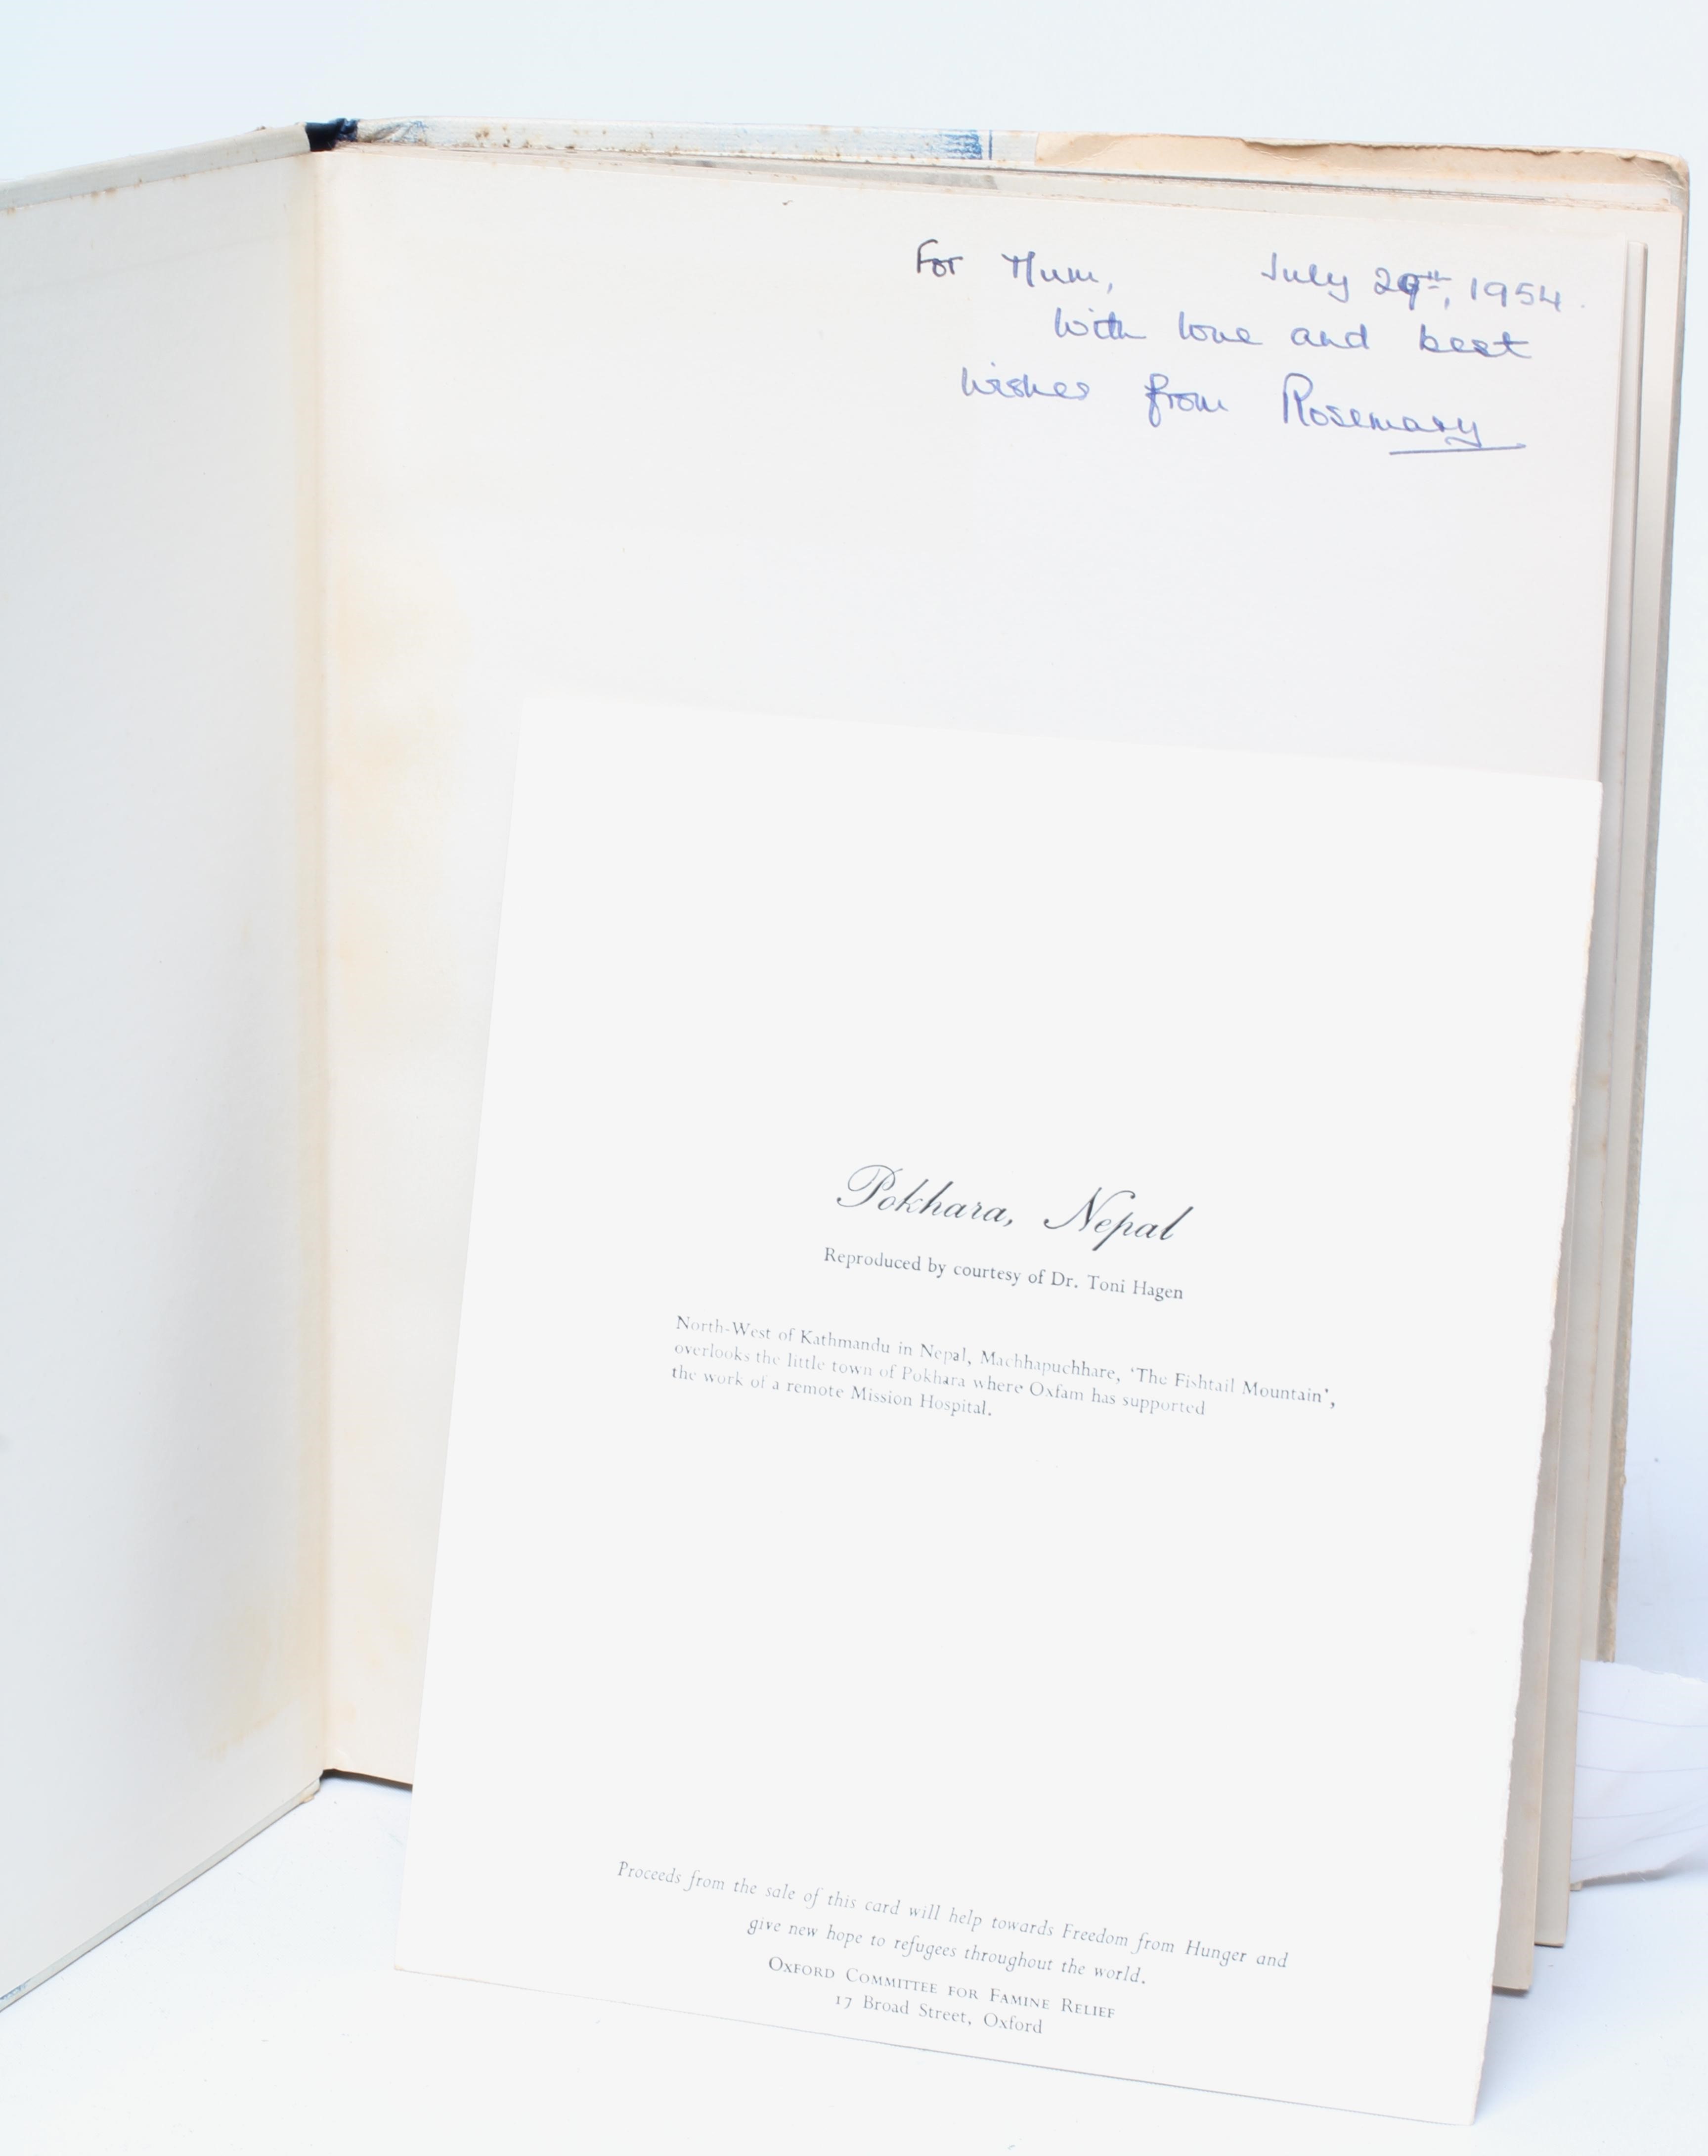 For Mum, July 29th, 1954.
With love and best
wishes from Rosemary
Pokhara, Nepal
Reproduced by courtesy of Dr. Toni Hagen
North-West of Kathmandu in Nepal, Machhapuchhare, ‘The Fishtail Mountain’,
overlooks the little town of Pokhara where Oxfam has supported
the work of a remote Mission Hospital.
Proceeds from the sale of this card will help towards Freedom from Hunger and
give new hope to refugees throughout the world.
Oxford Committee for Famine Relief
17 Broad Street, Oxford